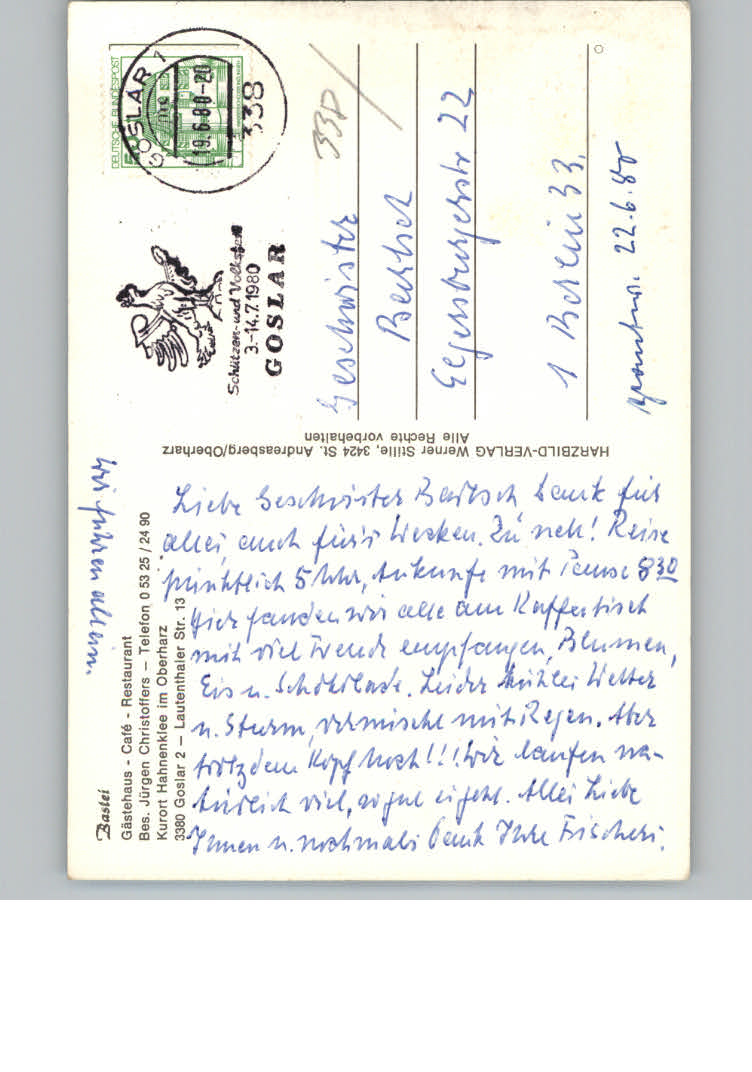 Bastei
Gästehaus - Café - Restaurant
Bes. Jürgen Christoffers – Telefon 0 53 25 / 24 90
Kurort Hahnenklee im Oberharz
3380 Goslar 2 – Lautenthaler Str. 13
wir fuhren allein.
Liebe Geschwister Bartsch Dank für
alles, auch für's Wecken. Zu nett! Reise
pünktlich 5 Uhr, Ankunft mit Pause 8 30
Hier fanden wir alle am Kaffeetisch
mit viel Freude empfangen, Blumen,
Eis u. Schokolade. Leider kühles Wetter
u. Sturm, vermischt mit Regen. Aber
trotzdem Kopf hoch!!! Wir laufen na-
türlich viel, so gut es geht. Alles Liebe
Ihnen u. nochmals Dank Ihre Fischers.
HARZBILD-VERLAG Werner Stille, 3424 St. Andreasberg/Oberharz
Alle Rechte vorbehalten
DEUTSCHE BUNDESPOST
GOSLAR 1
19.6.80-20
338
Schützen- und Volksfest
3.-14.7.1980
GOSLAR
338
Geschwister
Bartsch
Elgersburgerstr 22
1 Berlin 33.
beantw. 22.6.80